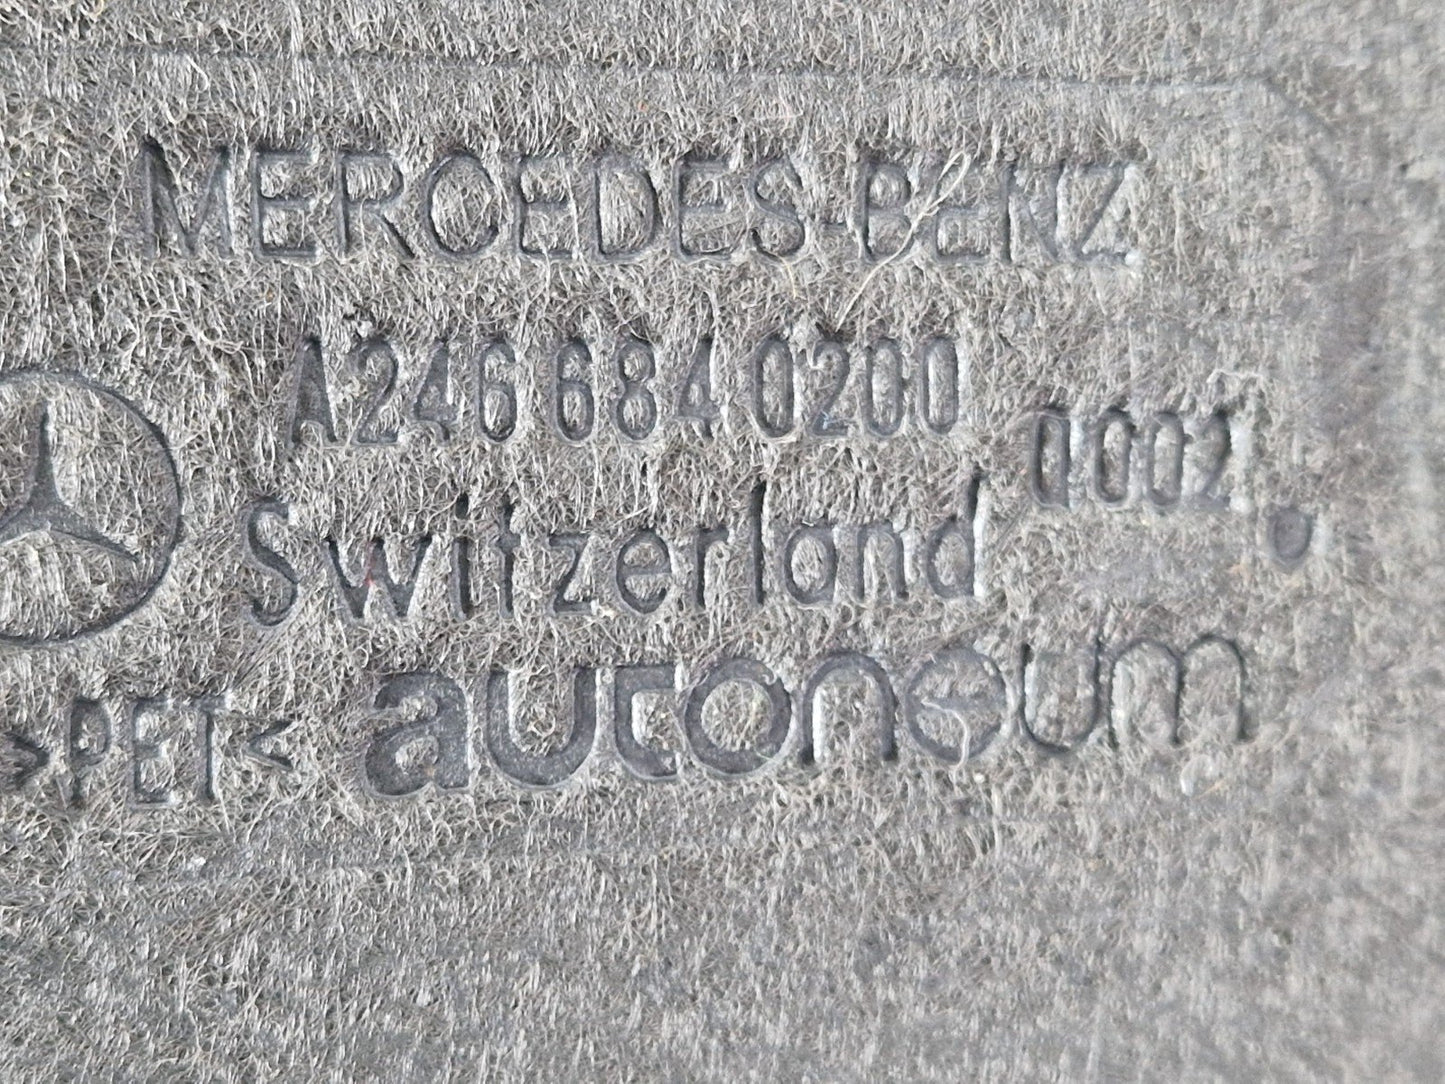 MERCEDES-BENZ
A 246 684 0200
0002
Switzerland
>PET< autoneum